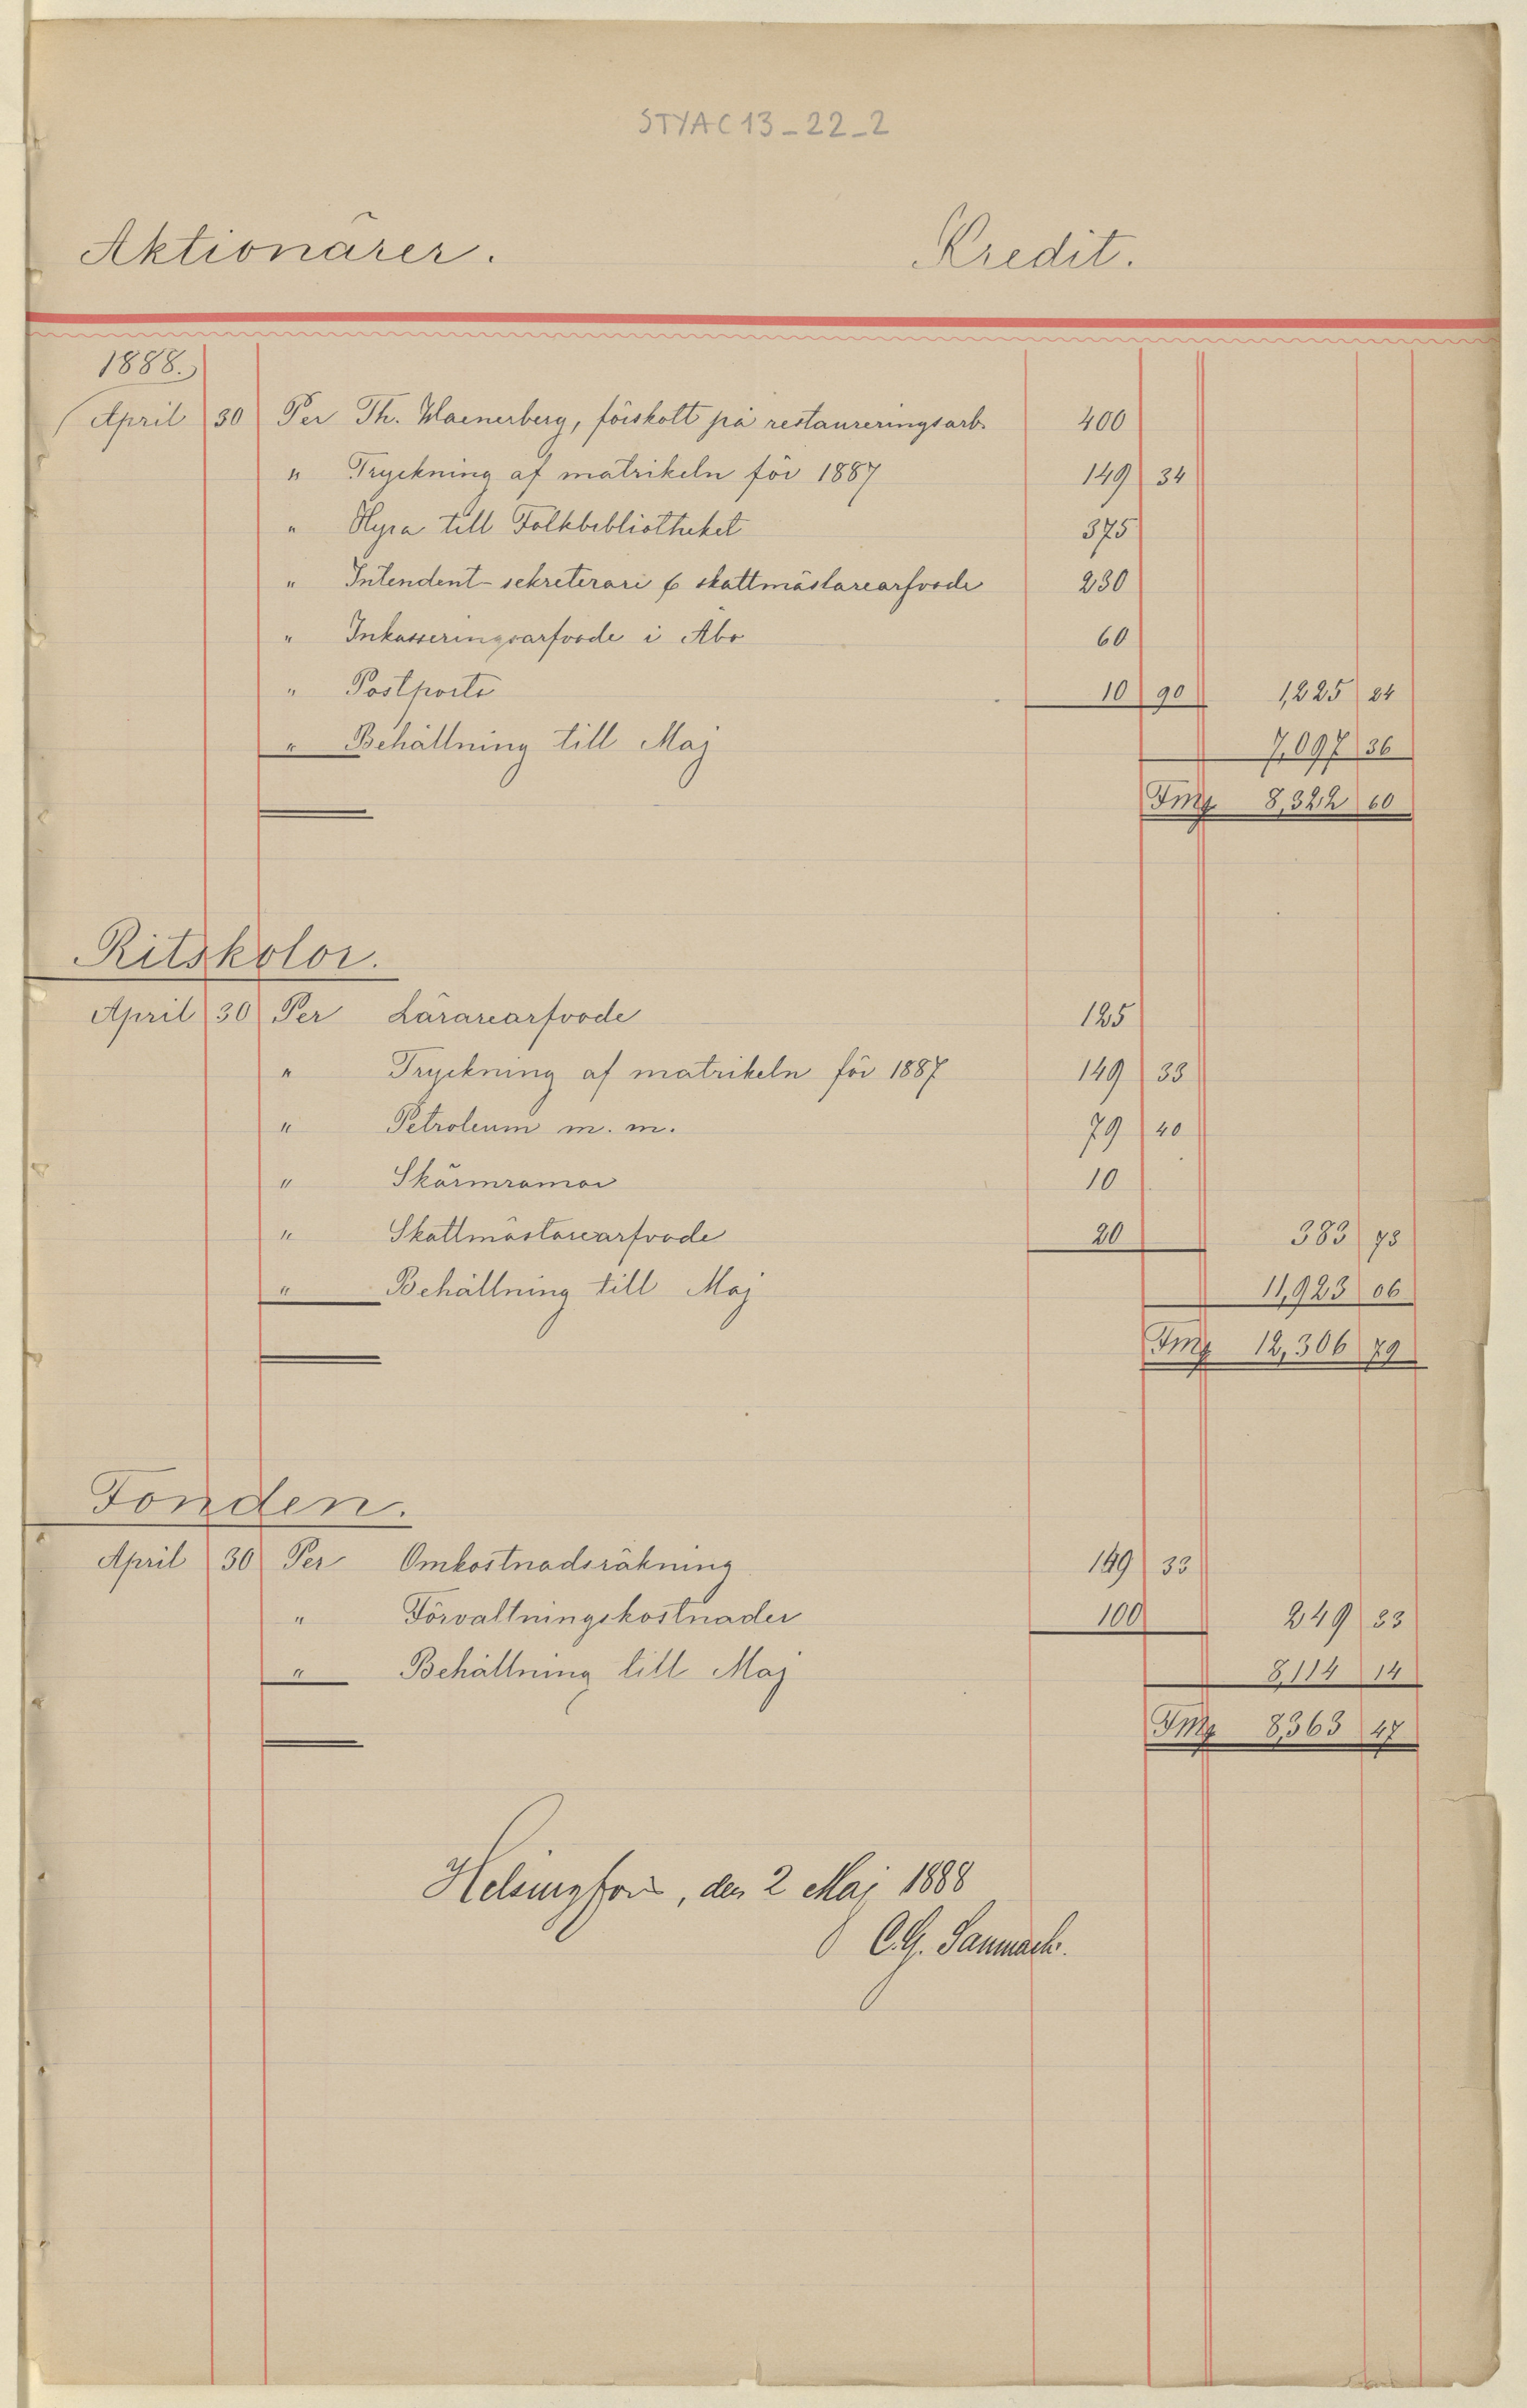 STYAC13-22-2
Aktionärer. Kredit.
1888.
April 30 Per Th. Waenerberg, förskott på restaureringsarb. 400
" Tryckning af matrikeln för 1887 149 34
" Hyra till Folkbibliotheket 375
" Intendent- sekreterare & skattmästarearfvode 230
" Inkasseringsarfvode i Åbo 60
" Postporto 10 90 1,225 24
" Behållning till Maj 7,097 36
Fmg 8,322 60
Ritskolor.
April 30 Per Lärarearfvode 125
" Tryckning af matrikeln för 1887 149 33
" Petroleum m. m. 79 40
" Skärmramar 10
" Skattmästarearfvode 20 383 73
" Behållning till Maj 11,923 06
Fmg 12,306 79
Fonden.
April 30 Per Omkostnadsräkning 149 33
" Förvaltningskostnader 100 249 33
" Behållning till Maj 8,114 14
Fmg 8,363 47
Helsingfors, den 2 Maj 1888
C.G. Sanmark.